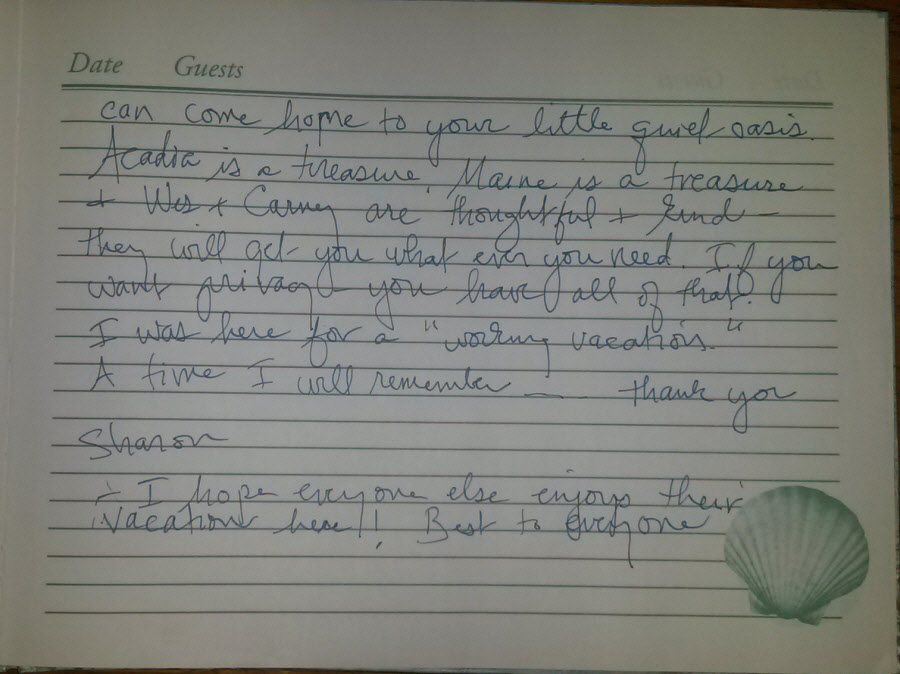 Date Guests
can come home to your little quiet oasis.
Acadia is a treasure, Maine is a treasure
+ Wes + Carney are thoughtful + kind –
they will get you what ever you need. If you
want privacy you have all of that.
I was here for a "working vacation."
A time I will remember __ thank you
Sharon
÷ I hope everyone else enjoys their
vacation here!! Best to everyone